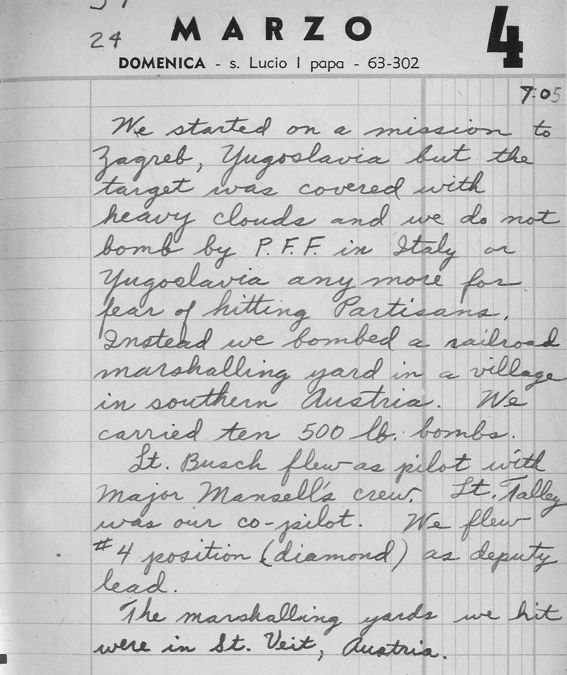 24 MARZO 4
DOMENICA - s. Lucio I papa - 63-302
7:05
We started on a mission to
Zagreb, Yugoslavia but the
target was covered with
heavy clouds and we do not
bomb by P.F.F. in Italy or
Yugoslavia any more for
fear of hitting Partisans.
Instead we bombed a railroad
marshalling yard in a village
in southern Austria. We
carried ten 500 lb. bombs.
Lt. Busch flew as pilot with
Major Mansell's crew. Lt. Talley
was our co-pilot. We flew
#4 position (diamond) as deputy
lead.
The marshalling yards we hit
were in St. Veit, Austria.